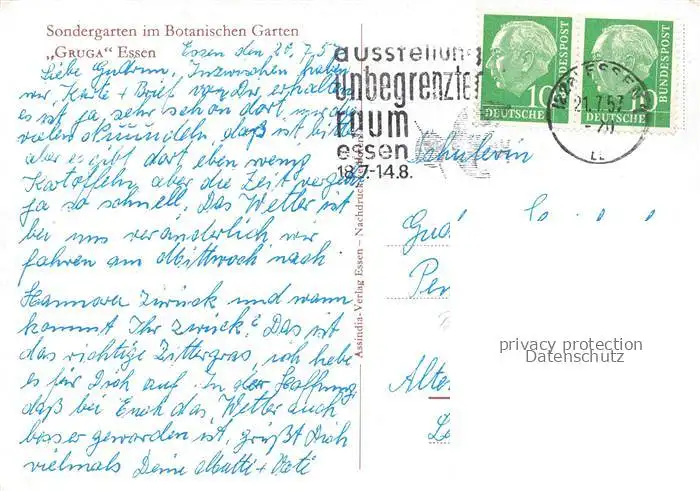 Sondergarten im Botanischen Garten
„GRUGA" Essen
Essen den 20.7.57
Liebe Gudrun, Inzwischen haben
wir, Karte + Brief von Dir erhalten
es ist ja sehr schön dort, mit
vielen daß ist
aber es gibt dort eben wenig
Kartoffeln, aber die Zeit vergeht
ja so schnell. Das Wetter ist
bei uns veränderlich, wir
fahren am Mittwoch nach
Hannover zurück und wann
kommt Ihr zurück? Das ist
das richtige Zittergras, ich hebe
es für Dich auf. In der Hoffnung,
daß bei Euch das Wetter auch
besser geworden ist, grüßt Dich
vielmals Deine Mutti + Vati
Assindia-Verlag Essen – Nachdruck verboten
ausstellung
unbegrenzter
raum
essen
18.7-14.8.
10
DEUTSCHE
BUNDESPOST
10
DEUTSCHE
BUNDESPOST
ESSEN
21.7.57
Schülerin
Gud
Pe
Alte
privacy protection
Datenschutz